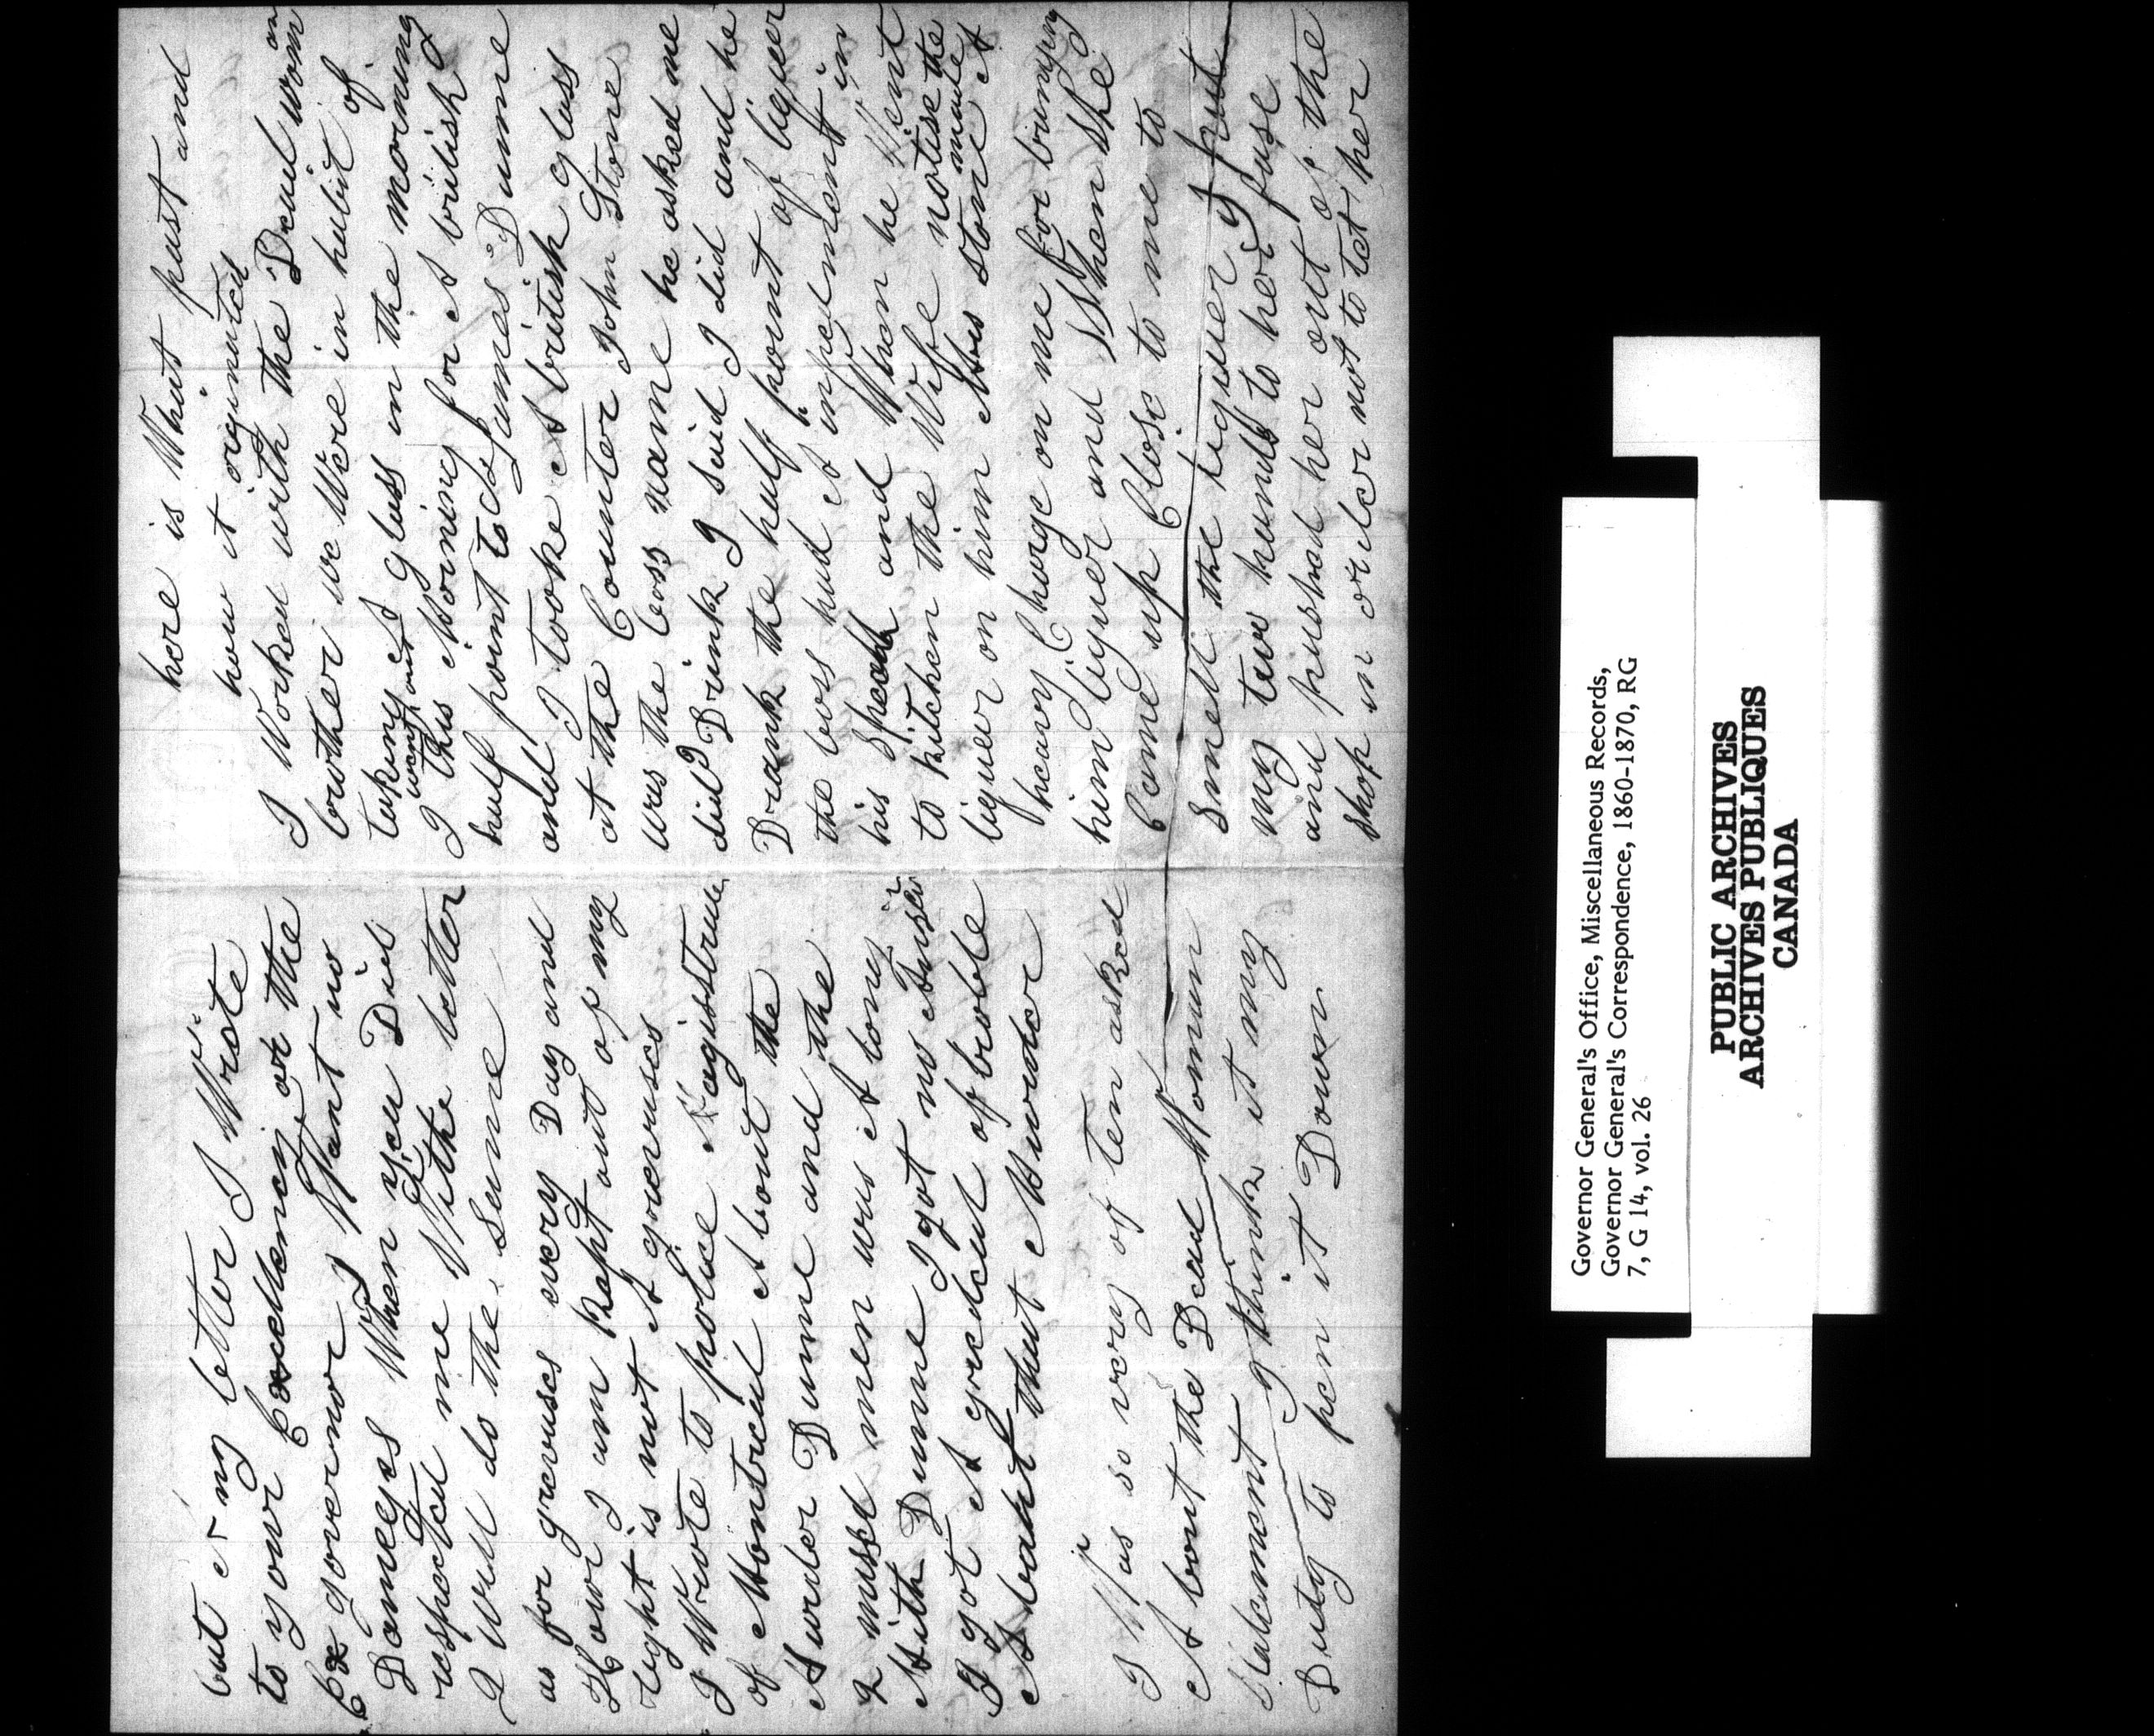 but er my letter I Wrote
to your Excellencey or the
Ex governor I Want no
Dameges When you Did
respected me Withe letter
I Will do the Same
as for greiveuses every Day and
Hour I am Kept out of my
right is not A greivuses
I Wrote to police Magistrate
of Montreal A bout the
Murder Dunne and the
2 mused men was A long
With Dunne I got no Anser
I got A gredeal of truble
A baut that Murder
I Was so very of ten asked
A bout the Dead Woman
Statement I think it my
Duty to pen it Down
here is What past and
how it originated
I Worked with the Dead woman
brother we Were in habit of
taking A glass in the morning
I went out this Morning for A british
half point to James Dunne
and I tooke A british glass
at the Counter John Stone
was the boss name he asked me
did I Drink I said I did and he
Drank the half point of liquer
the boss had A impedment in
his Speach and When he Went
to kitchen the Wife notise the
liquer on him Mrs Stone made A
heavy Charge on me for bringing
him liquer and When she
Came up Close to me to
Smell the liquer I put
my two hands to her fase
and pushed her out of the
shop in order not to let her
Governor General's Office, Miscellaneous Records,
Governor General's Correspondence, 1860-1870, RG
7, G 14, vol. 26
PUBLIC ARCHIVES
ARCHIVES PUBLIQUES
CANADA